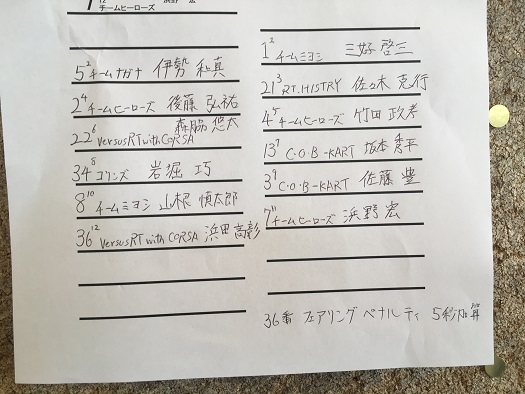 チームヒーローズ
5² チームナガナ 伊勢 和真
2⁴ チームヒーローズ 後藤 弘祐
22⁶ VersusRT with CORSA 森脇 悠太
34⁸ コリンズ 岩堀 巧
8¹⁰ チームミヨシ 山根 慎太郎
36¹² VersusRT with CORSA 浜田 高彰
1² チームミヨシ 三好 啓三
21³ RT.HISTRY 佐々木 克行
4⁵ チームヒーローズ 竹田 政孝
13⁷ C.O.B-KART 坂本 秀平
3⁹ C.O.B-KART 佐藤 豊
7¹¹ チームヒーローズ 浜野 宏
36番 フェアリング ペナルティ 5秒加算